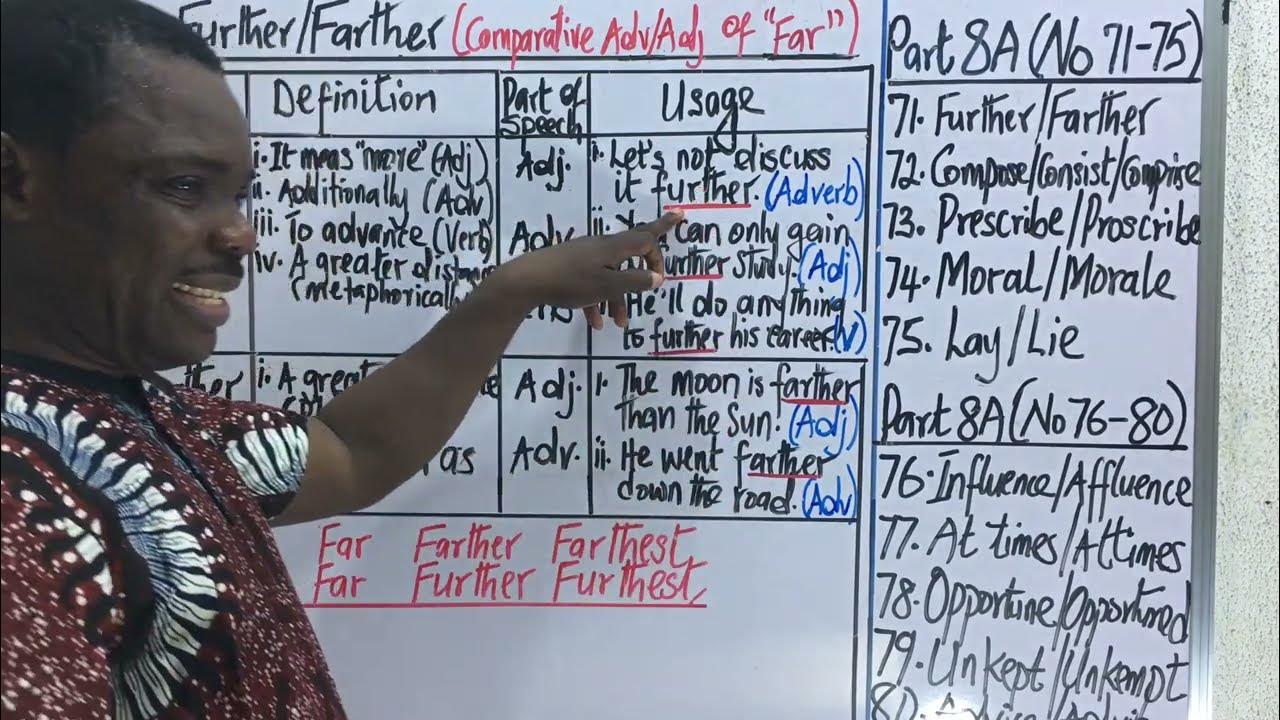 Further/Farther (Comparative Adv/Adj of "Far")
Definition
Part of
Speech
Usage
i. It means "more" (Adj)
ii. Additionally (Adv)
iii. To advance (Verb)
iv. A greater distance
(metaphorically)
Adj.
Adv.
i. Let's not discuss
it further. (Adverb)
ii. You can only gain
further study. (Adj)
He'll do anything
to further his career. (V)
i. A
as
Adj.
Adv.
1. The moon is farther
Than the Sun. (Adj)
ii. He went farther
down the road. (Adv)
Far Farther Farthest
Far Further Furthest
Part 8A (No 71-75)
71. Further/Farther
72. Compose/Consist/Comprise
73. Prescribe/Proscribe
74. Moral/Morale
75. Lay/Lie
Part 8A (No 76-80)
76. Influence/Affluence
77. At times/Attimes
78. Opportune/Opportuned
79. Unkept/Unkempt
80.